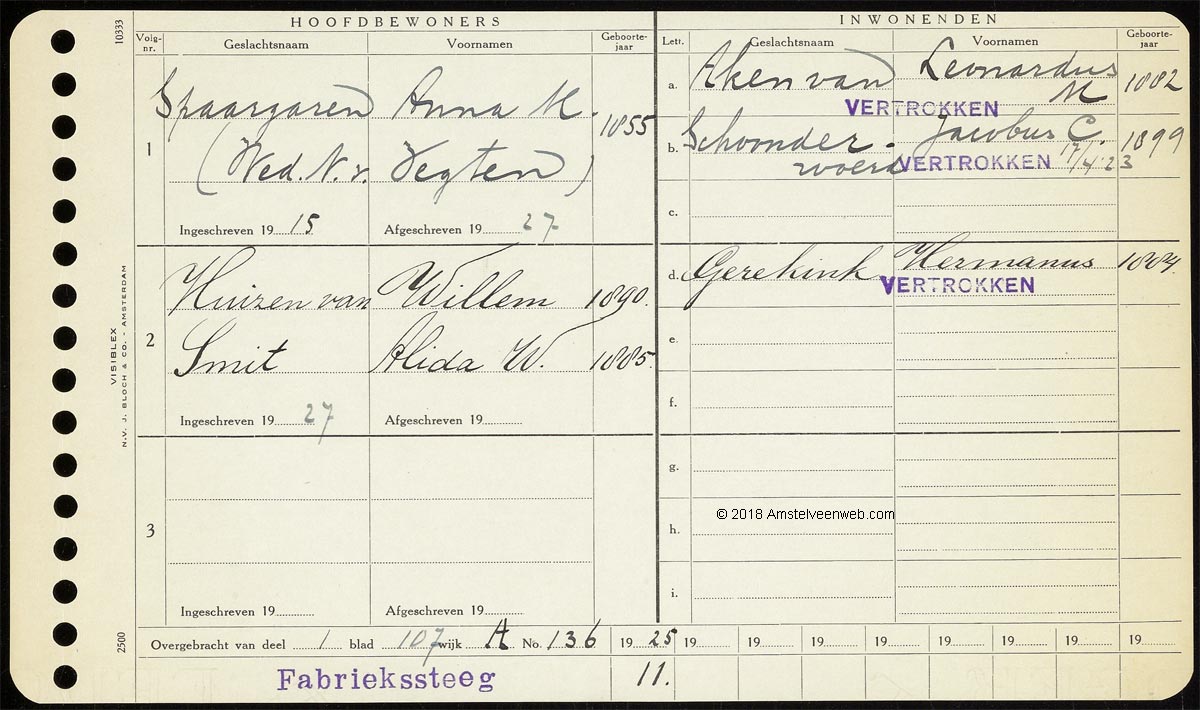 HOOFDBEWONERS
INWONENDEN
Volg-nr. Geslachtsnaam Voornamen Geboorte-jaar
Lett. Geslachtsnaam Voornamen Geboorte-jaar
1
Spaargaren Anna M. 1855
(Wed. N. v. Vegten)
Ingeschreven 19 15 Afgeschreven 19 27
a. Aken van Leonardus M 1882
VERTROKKEN
b. Schoonder-woerd Jacobus C. 1899
VERTROKKEN 17/4 '23
c.
2
Huizen van Willem 1890.
Smit Alida W. 1885.
Ingeschreven 19 27 Afgeschreven 19
d. Gerekink Hermanus
VERTROKKEN
e.
f.
3
Ingeschreven 19 Afgeschreven 19
g.
h.
i.
© 2018 Amstelveenweb.com
Overgebracht van deel 1 blad 107 wijk A No. 136 19 25 19 19 19 19 19 19 19 19
Fabriekssteeg 11.
10333
VISIBLEX
N.V. J. BLOCH & CO. - AMSTERDAM
2500